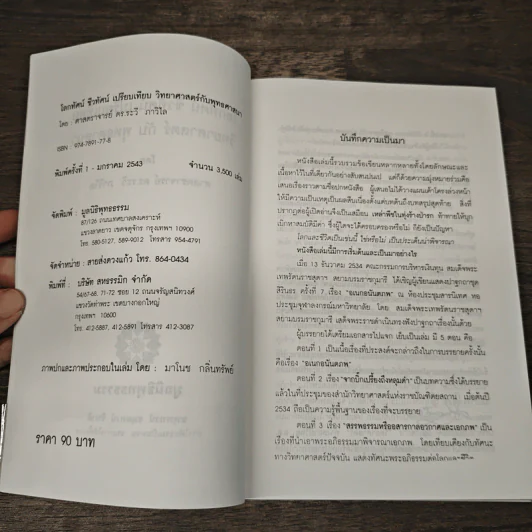 โลกทัศน์ ชีวทัศน์ เปรียบเทียบ วิทยาศาสตร์กับพุทธศาสนา
โดย : ศาสตราจารย์ ดร.ระวี ภาวิไล
ISBN : 974-7891-77-8
พิมพ์ครั้งที่ 1 - มกราคม 2543 จำนวน 3,500 เล่ม
จัดพิมพ์ : มูลนิธิพุทธธรรม
87/126 ถนนเทศบาลสงเคราะห์
แขวงลาดยาว เขตจตุจักร กรุงเทพฯ 10900
โทร. 580-5127, 589-9012 โทรสาร 954-4791
จัดจำหน่าย : สายส่งดวงแก้ว โทร. 864-0434
พิมพ์ที่ : บริษัท สหธรรมิก จำกัด
54/67-68, 71-72 ซอย 12 ถนนจรัญสนิทวงศ์
แขวงวัดท่าพระ เขตบางกอกใหญ่
กรุงเทพฯ 10600
โทร. 412-3087
ภาพปกและภาพประกอบในเล่ม โดย : มาโนช กลิ่นทรัพย์
ราคา 90 บาท
บันทึกความเป็นมา
หนังสือเล่มนี้รวบรวมข้อเขียนหลากหลายทั้งโดยลักษณะและ
เนื้อหาไว้ในที่เดียวกันอย่างสับสนเปนเป แต่ก็ด้วยความมุ่งหมายร่วมคือ
เสนอเรื่องราวตามชื่อปกหนังสือ ผู้เสนอไม่ได้วางแผนเค้าโครงล่วงหน้า
ให้มีความเป็นเหตุเป็นผลสืบเนื่องตั้งแต่บทต้นถึงบทสรุปสุดท้าย สิ่งที่
ปรากฏต่อผู้เปิดอ่านจึงเป็นเสมือน เหล่าพืชในทุ่งร้างป่ารก ท้าทายให้บุก
เบิกหาสมบัติมีค่า ซึ่งผู้ใดจะได้ครอบครองหรือไม่ ก็ยังเป็นปัญหา
โลกและชีวิตเป็นเช่นนี้ ใช่หรือไม่ เป็นประเด็นน่าพิจารณา
หนังสือเล่มนี้มีการเริ่มต้นและเป็นมาอย่างไร
เมื่อ 13 ธันวาคม 2534 คณะกรรมการบริหารเงินทุน สมเด็จพระ
เทพรัตนราชสุดาฯ สยามบรมราชกุมารี ได้เชิญผู้เขียนแสดงปาฐกถาชุด
สิรินธร ครั้งที่ 7 เรื่อง "อเนกอนันตภาพ" ณ ห้องประชุมสารนิเทศ หอ
ประชุมจุฬาลงกรณ์มหาวิทยาลัย โดย สมเด็จพระเทพรัตนราชสุดาฯ
สยามบรมราชกุมารี เสด็จพระราชดำเนินทรงฟังปาฐกถาเรื่องนั้นด้วย
ผู้บรรยายได้เตรียมเอกสารไปแจก เย็บเป็นเล่ม มี 5 ตอน คือ
ตอนที่ 1 เป็นเนื้อเรื่องที่ประสงค์จะกล่าวถึงในการบรรยายครั้งนั้น
คือเรื่อง "อเนกอนันตภาพ"
ตอนที่ 2 เรื่อง "จากบิ๊กเปรี้ยงถึงหลุมดำ" เป็นบทความซึ่งได้บรรยาย
แล้วในที่ประชุมของสำนักวิทยาศาสตร์แห่งราชบัณฑิตยสถาน เมื่อต้นปี
2534 ถือเป็นความรู้พื้นฐานของเรื่องที่จะบรรยาย
ตอนที่ 3 เรื่อง "สรรพธรรมหรือองสารกาลอวกาศและเอกภพ" เป็น
เรื่องที่นำเอาพระอภิธรรมมาพิจารณาเอกภพ โดยเทียบเคียงกับทัศนะ
ทางวิทยาศาสตร์ปัจจุบัน แสดงทัศนะพระอภิธรรมต่อโลกและชีวิต